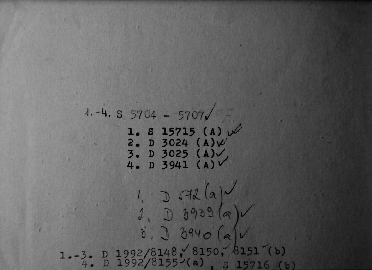 1.-4. S 5704 - 5707✓
1. S 15715 (A) ✓
2. D 3024 (A)✓
3. D 3025 (A)✓
4. D 3941 (A)✓
1. D 572 (a)✓
2. D 3939 (a)✓
3. D 3940 (a)✓
1.-3. D 1992/8148,✓ 8150,✓ 8151✓(b)
4. D 1992/8155✓(a), S 15716 (b)